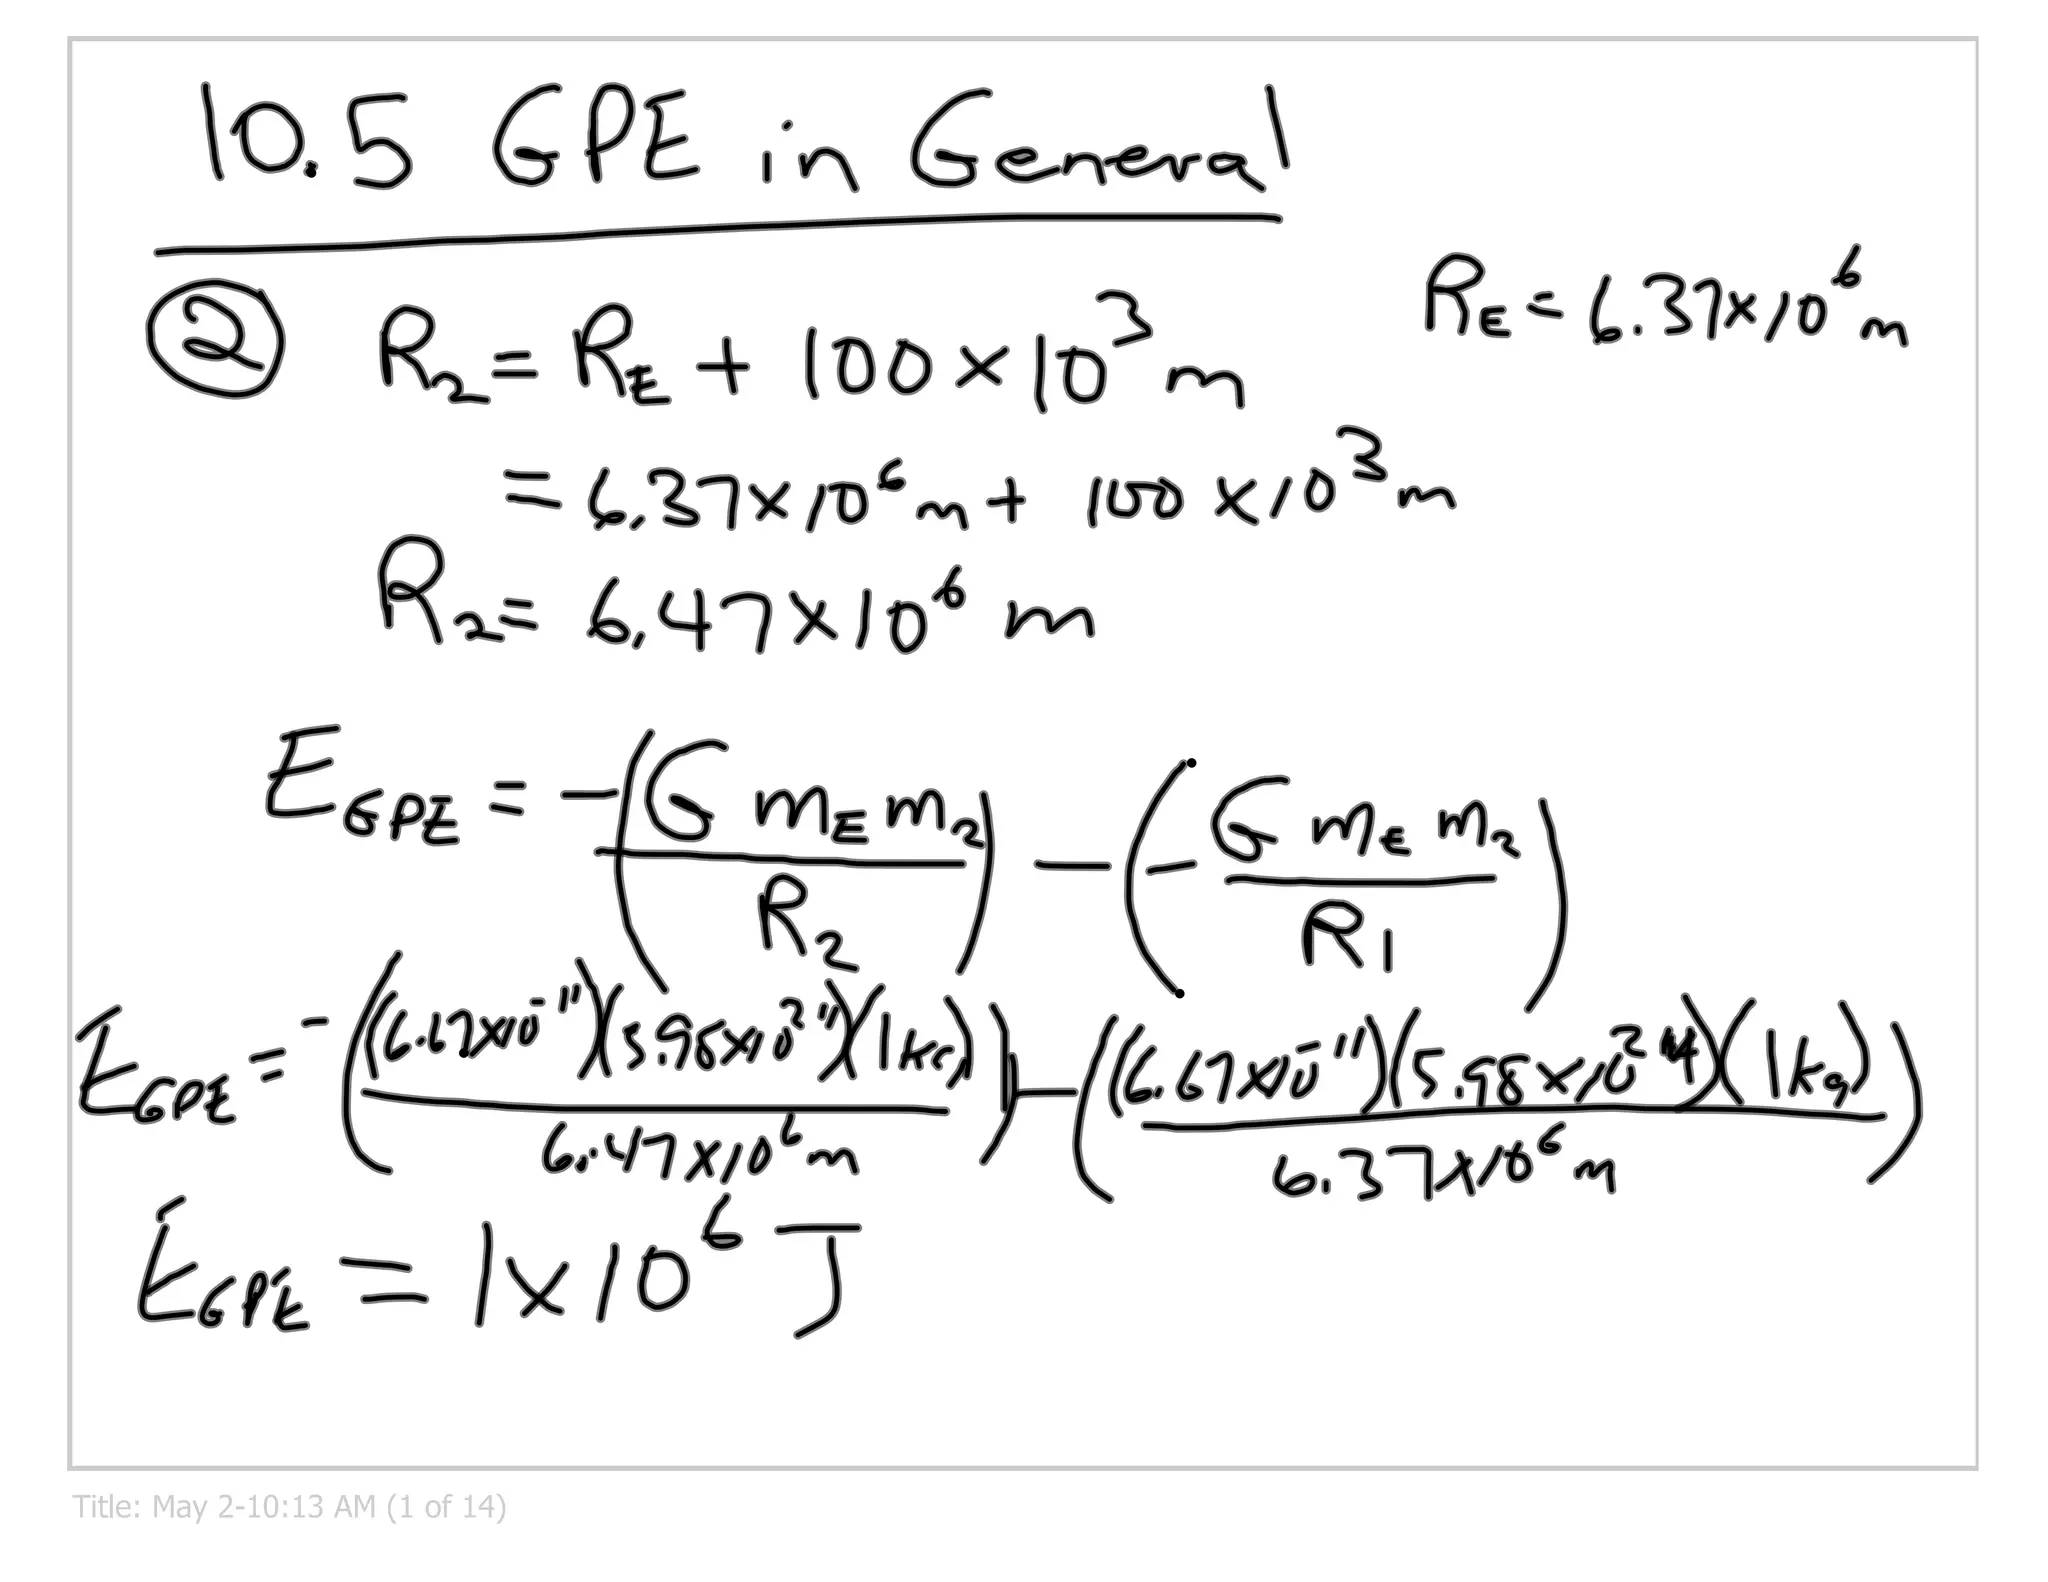 10.5 GPE in General
② R₂ = R_E + 100×10³ m
R_E = 6.37×10⁶ m
= 6.37×10⁶ m + 100×10³ m
R₂ = 6.47×10⁶ m
E_GPE = -(G m_E m₂ / R₂) - (-G m_E m₂ / R₁)
E_GPE = -((6.67×10⁻¹¹)(5.98×10²⁴)(1kg) / 6.47×10⁶ m) - (-(6.67×10⁻¹¹)(5.98×10²⁴)(1kg) / 6.37×10⁶ m)
E_GPE = 1×10⁶ J
Title: May 2-10:13 AM (1 of 14)